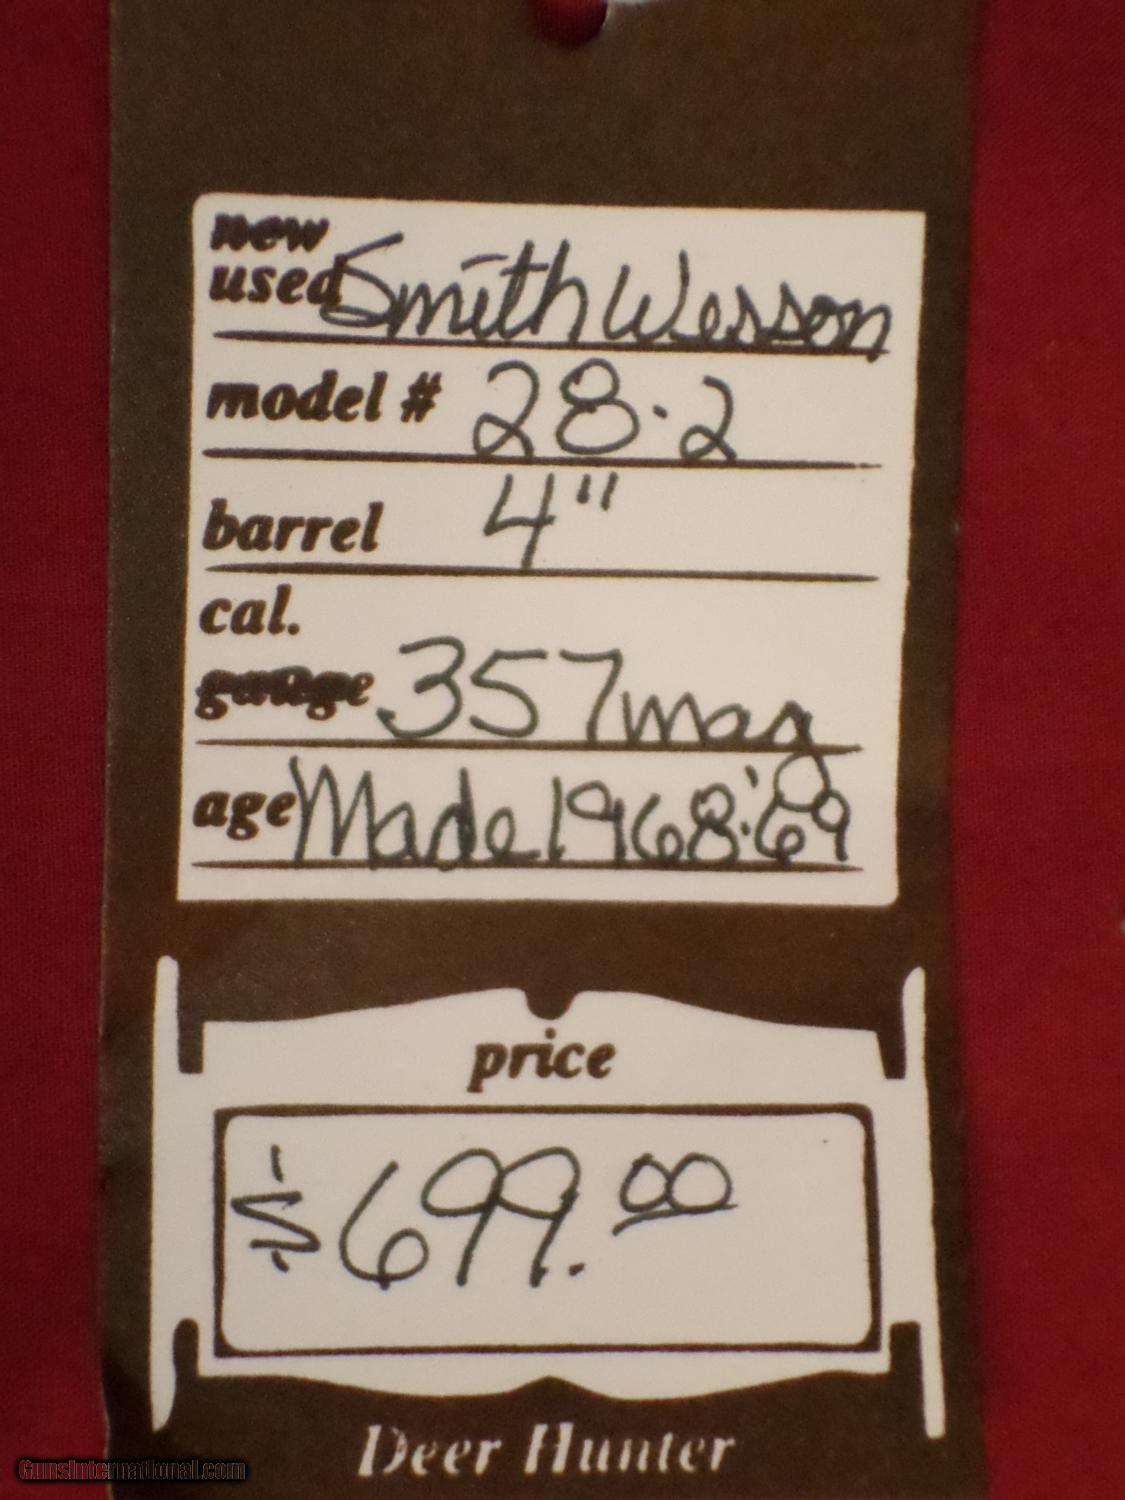 new
used Smith Wesson
model # 28-2
barrel 4"
cal.
gauge .357 mag
age Made 1968-'69
price
$699.00
Deer Hunter
GunsInternational.com